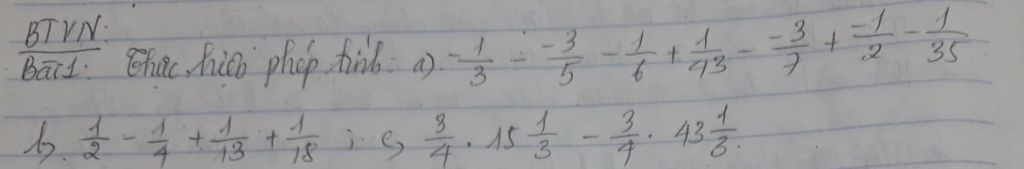 BTVN:
Bài 1: Thực hiện phép tính: a) -1/3 - -3/5 - 1/6 + 1/43 - -3/7 + -1/2 - 1/35
b. 1/2 - 1/4 + 1/13 + 1/18 ; c) 3/4 . 15 1/3 - 3/4 . 43 1/3.